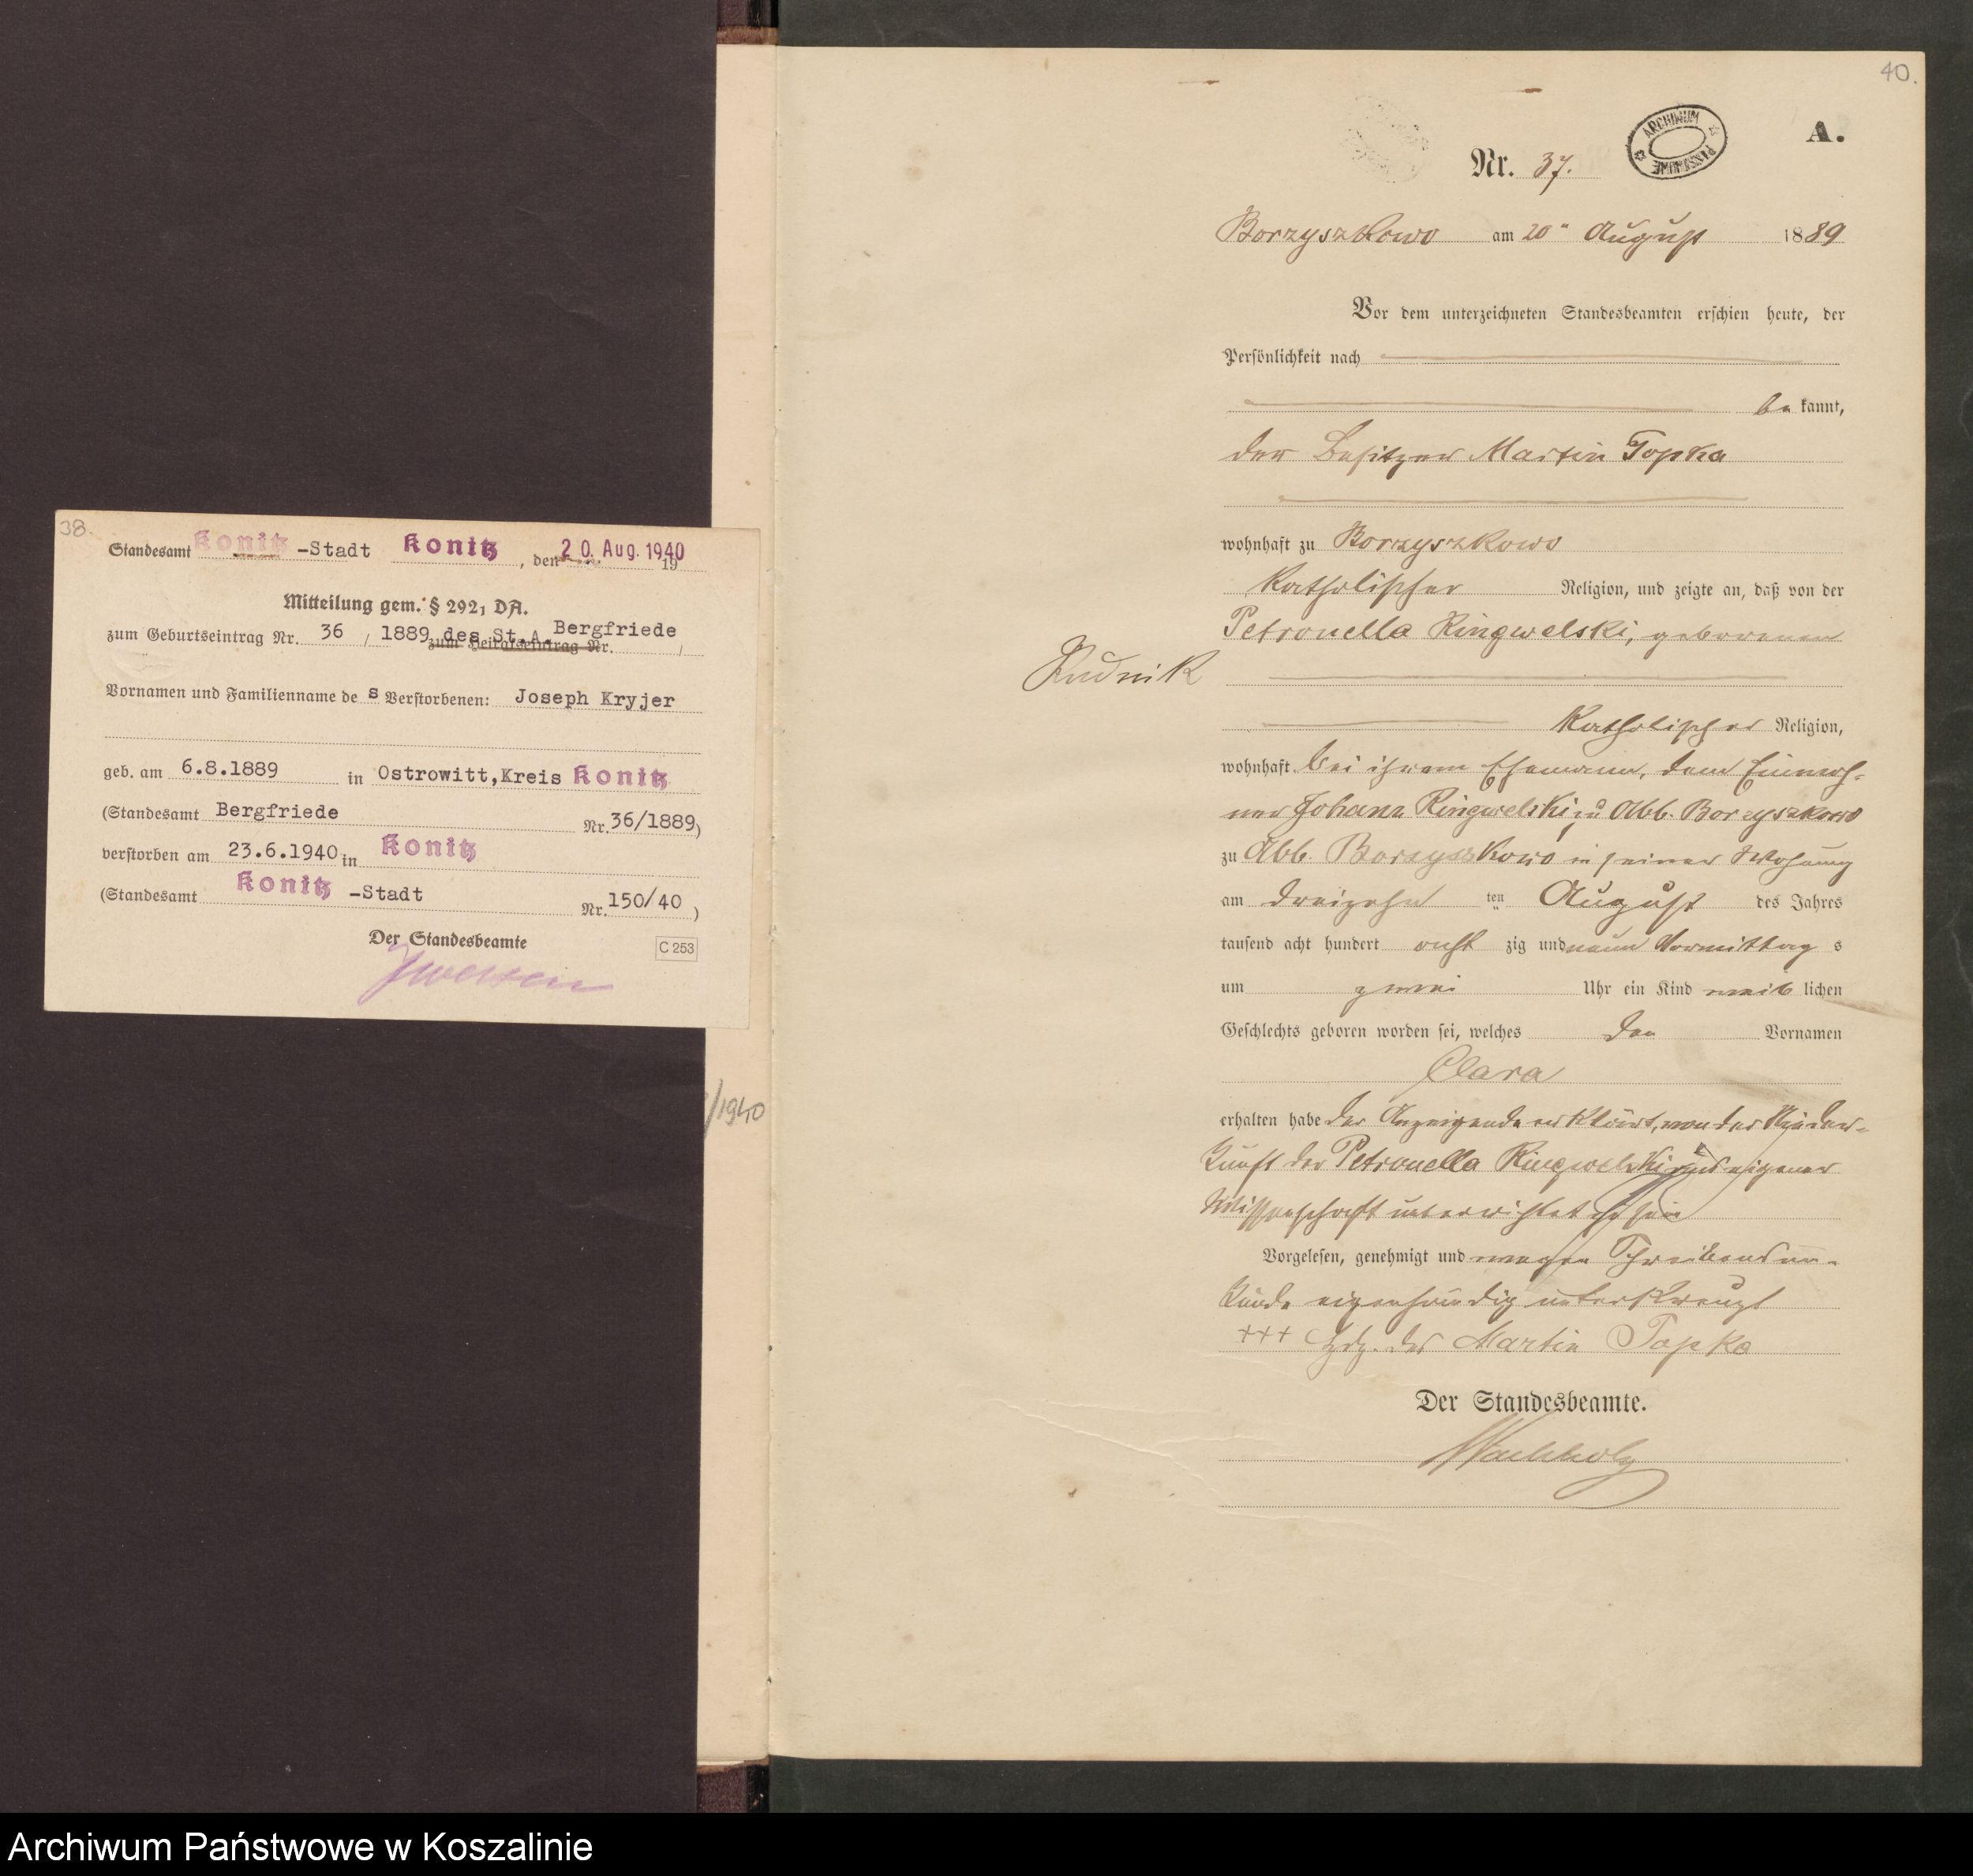 38.
Standesamt Konitz -Stadt Konitz, den 20. Aug. 1940 19
Mitteilung gem. § 292, DA.
zum Geburtseintrag Nr. 36, 1889 des St.A. Bergfriede
zum Heiratseintrag Nr.
Vornamen und Familienname des Verstorbenen: Joseph Kryjer
geb. am 6.8.1889 in Ostrowitt, Kreis Konitz
(Standesamt Bergfriede Nr. 36/1889)
verstorben am 23.6.1940 in Konitz
(Standesamt Konitz -Stadt Nr. 150/40)
Der Standesbeamte
C 253
/1940
40.
A.
ARCHIWUM PAŃSTWOWE
Nr. 37.
Borzyszkowo am 20n August 1889
Vor dem unterzeichneten Standesbeamten erschien heute, der
Persönlichkeit nach
be kannt,
der Besitzer Martin Topka
wohnhaft zu Borzyszkowo
katholischer Religion, und zeigte an, daß von der
Petronella Ringwelski, geborenen
Rudnik
katholischer Religion,
wohnhaft bei ihrem Ehemann, dem Einwoh-
ner Johann Ringwelski zu Abb. Borzyszkowo
zu Abb. Borzyszkowo in seiner Wohnung
am dreizehn ten August des Jahres
tausend acht hundert acht zig und neun Vormittag s
um zwei Uhr ein Kind weib lichen
Geschlechts geboren worden sei, welches den Vornamen
Clara
erhalten habe der Anzeigende erklärt, von der Nieder-
kunft der Petronella Ringwelski aus eigener
Wissenschaft unterrichtet zu sein
Vorgelesen, genehmigt und wegen Schreibensun-
kunde eigenhändig unterkreuzt
+++ Hdz. des Martin Topka
Der Standesbeamte.
Wachholz
Archiwum Państwowe w Koszalinie